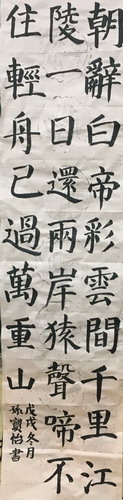 朝辭白帝彩雲間千里江
陵一日還兩岸猿聲啼不
住輕舟已過萬重山
戊戌冬月
孫寶怡書